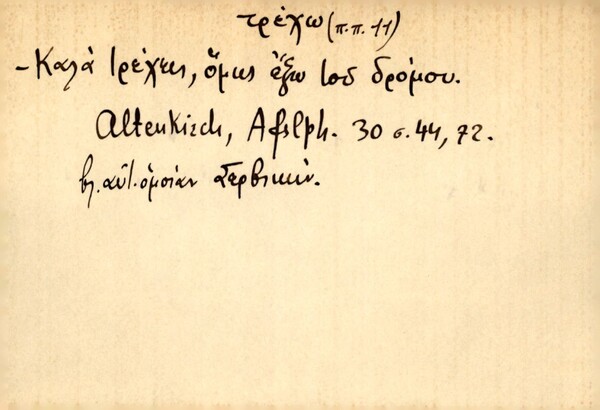 τρέχω (π.π. 11)
- Καλὰ τρέχεις, ὅμως ἔξω τοῦ δρόμου.
Altenkirch, Afslph. 30 σ. 44, 72.
βλ. αὐτ. ὁμοίαν Σερβικήν.